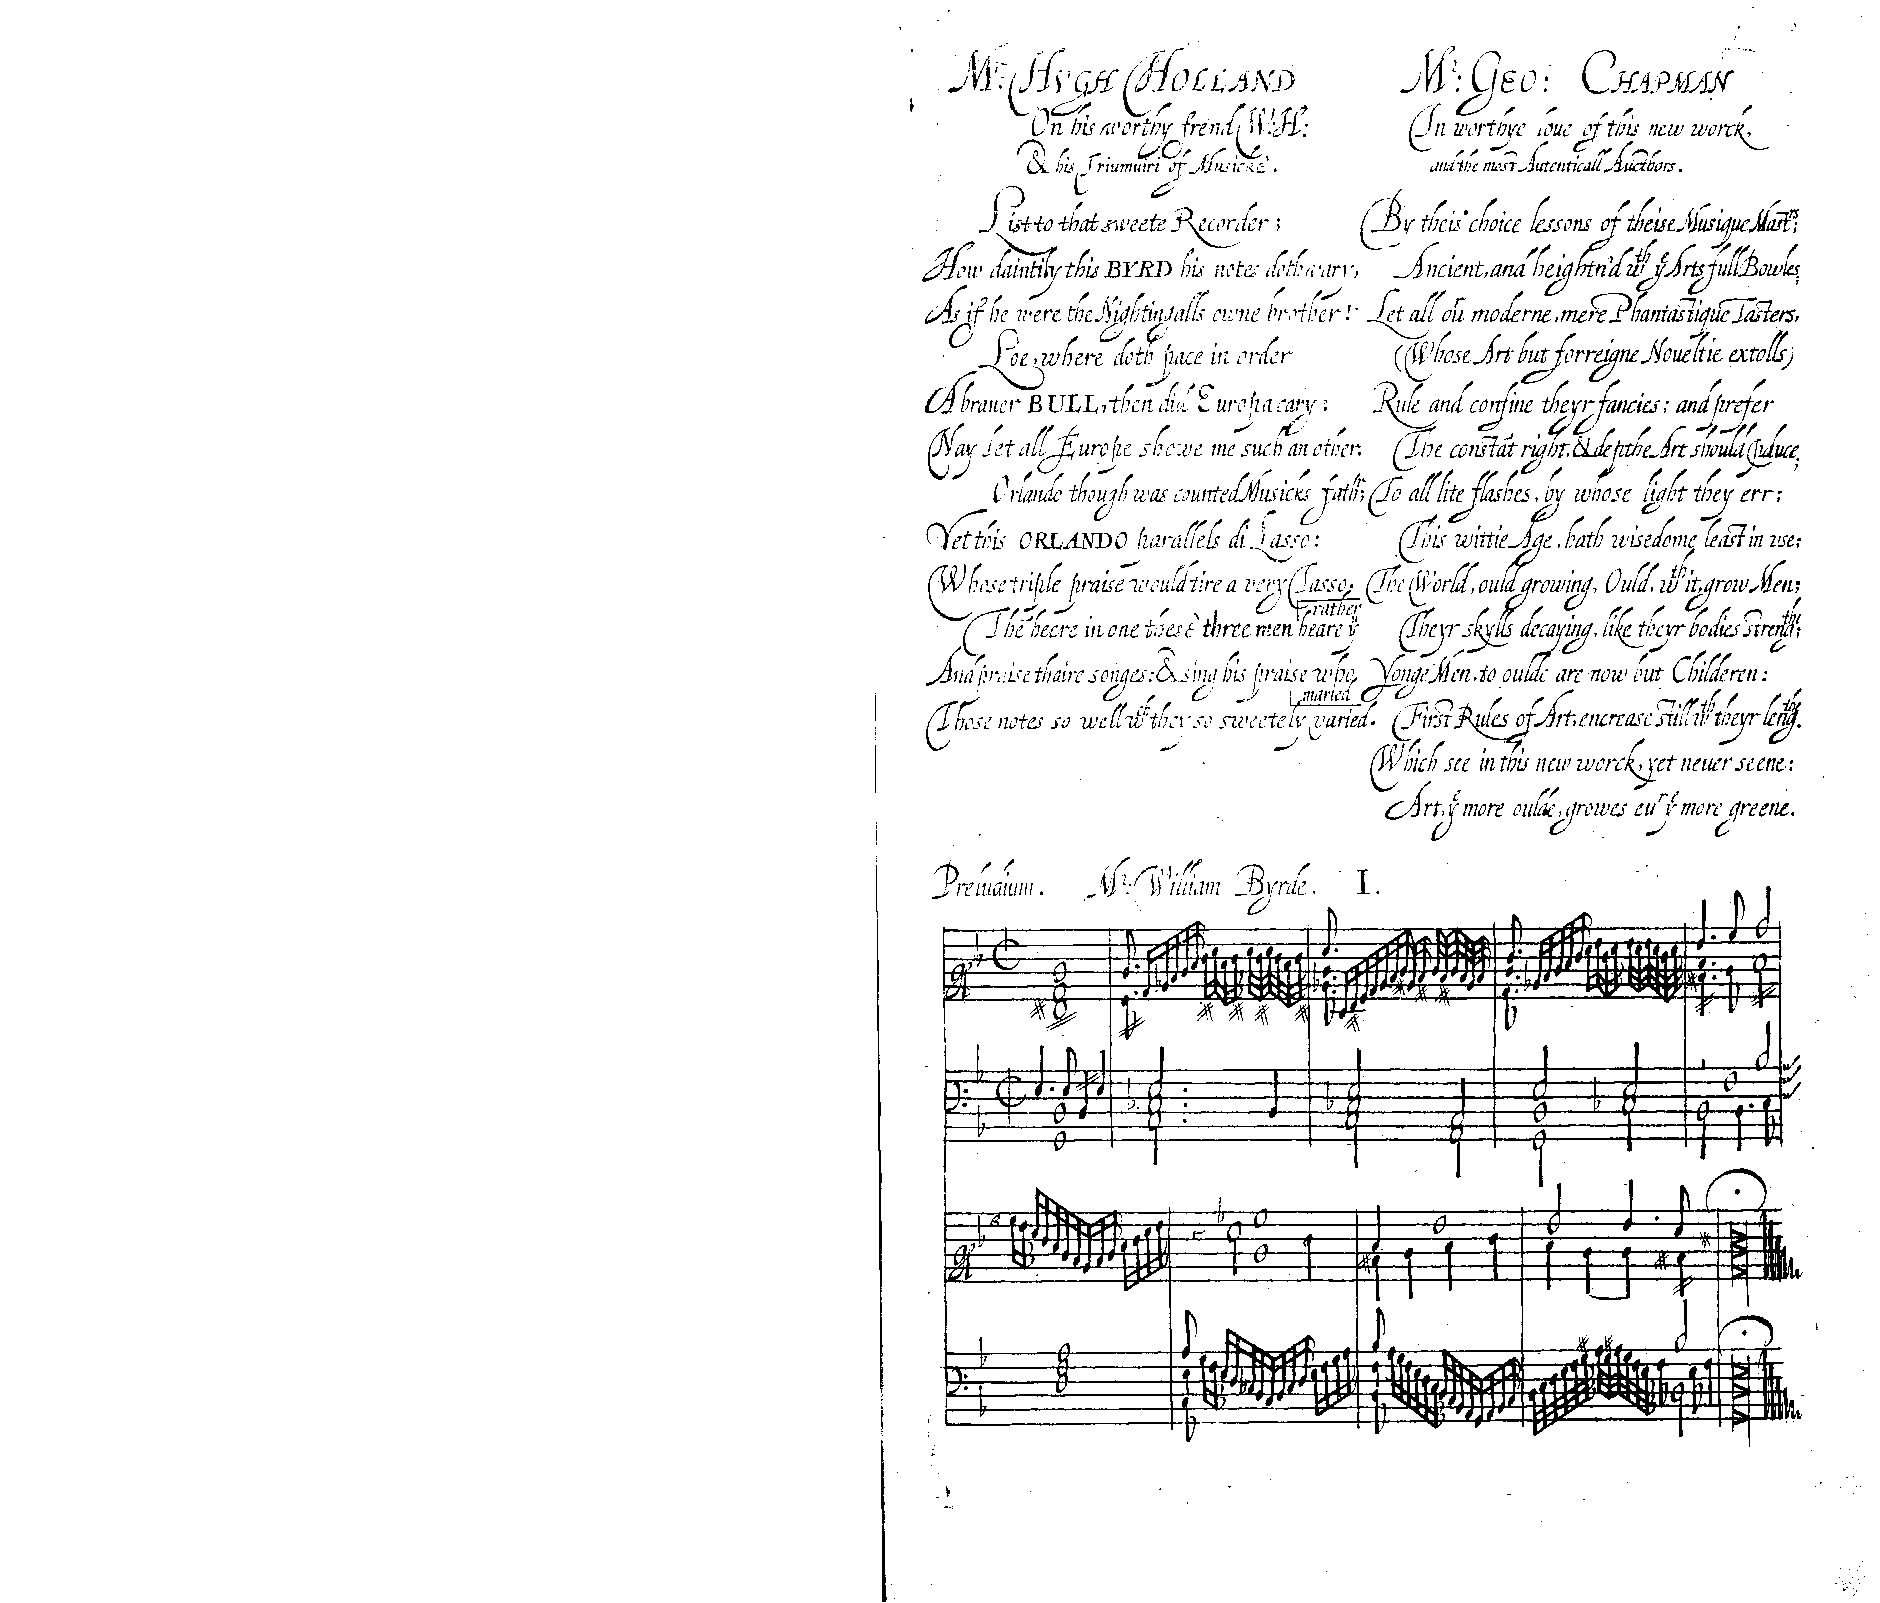 Mr: HVGH HOLLAND
On his worthy frend W: H:
& his Triumuiri of Musicke.
List to that sweete Recorder;
How daintily this BYRD his notes doth vary,
As if he were the Nightingalls owne brother!
Loe, where doth pace in order
A brauer BULL, then did Europa cary:
Nay let all Europe showe me such an other.
Orlando though was counted Musicks fathr;
Yet this ORLANDO parallels di Lasso:
Whose triple praise would tire a very Tasso;
The heere in one these three men heare ye rather
And praise thaire songes: & sing his praise who maried
Those notes so well wch they so sweetely varied.
Mr: GEO: CHAPMAN
In worthye loue of this new worck,
and the most Autenticall Aucthors.
By theis choice lessons of theise Musique Mastrs;
Ancient, and heightn'd wth ye Arts full Bowles,
Let all our moderne, mere Phantastique Tasters,
(Whose Art but forreigne Noueltie extolls)
Rule and confine theyr fancies; and prefer
The constāt right, & depthe Art should produce,
To all lite flashes, by whose light they err;
This wittie Age, hath wisedome least in vse;
The World, ould growing, Ould, wth it, grow Men;
Theyr skylls decaying, like theyr bodies strengthe;
Yonge Men, to oulde are now but Childeren:
First Rules of Art, encrease still wth theyr lengthe.
Which see in this new worck, yet neuer seene:
Art, ye more oulde, growes eur ye more greene.
Preludium. Mr: William Byrde. I.